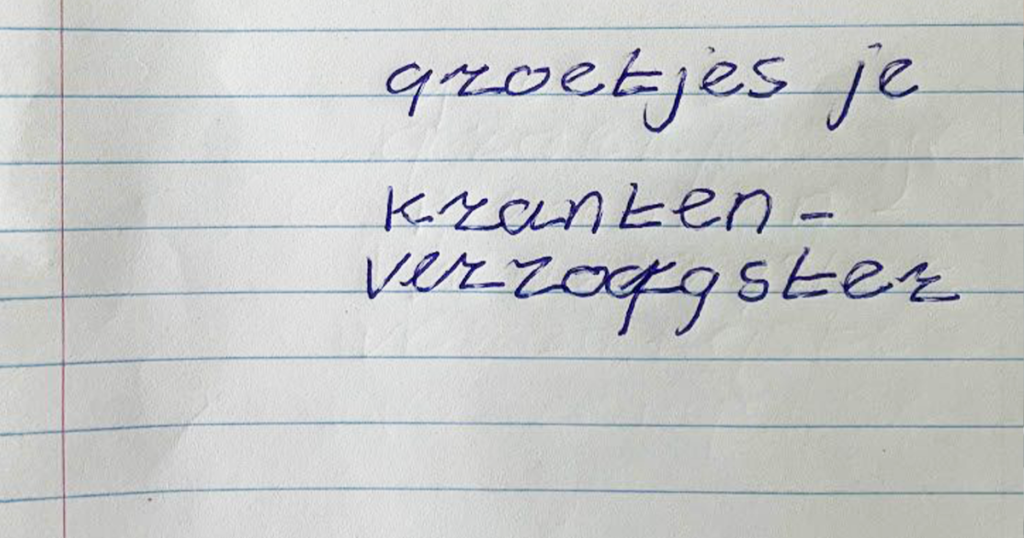 groetjes je
kranten-
verzorgster